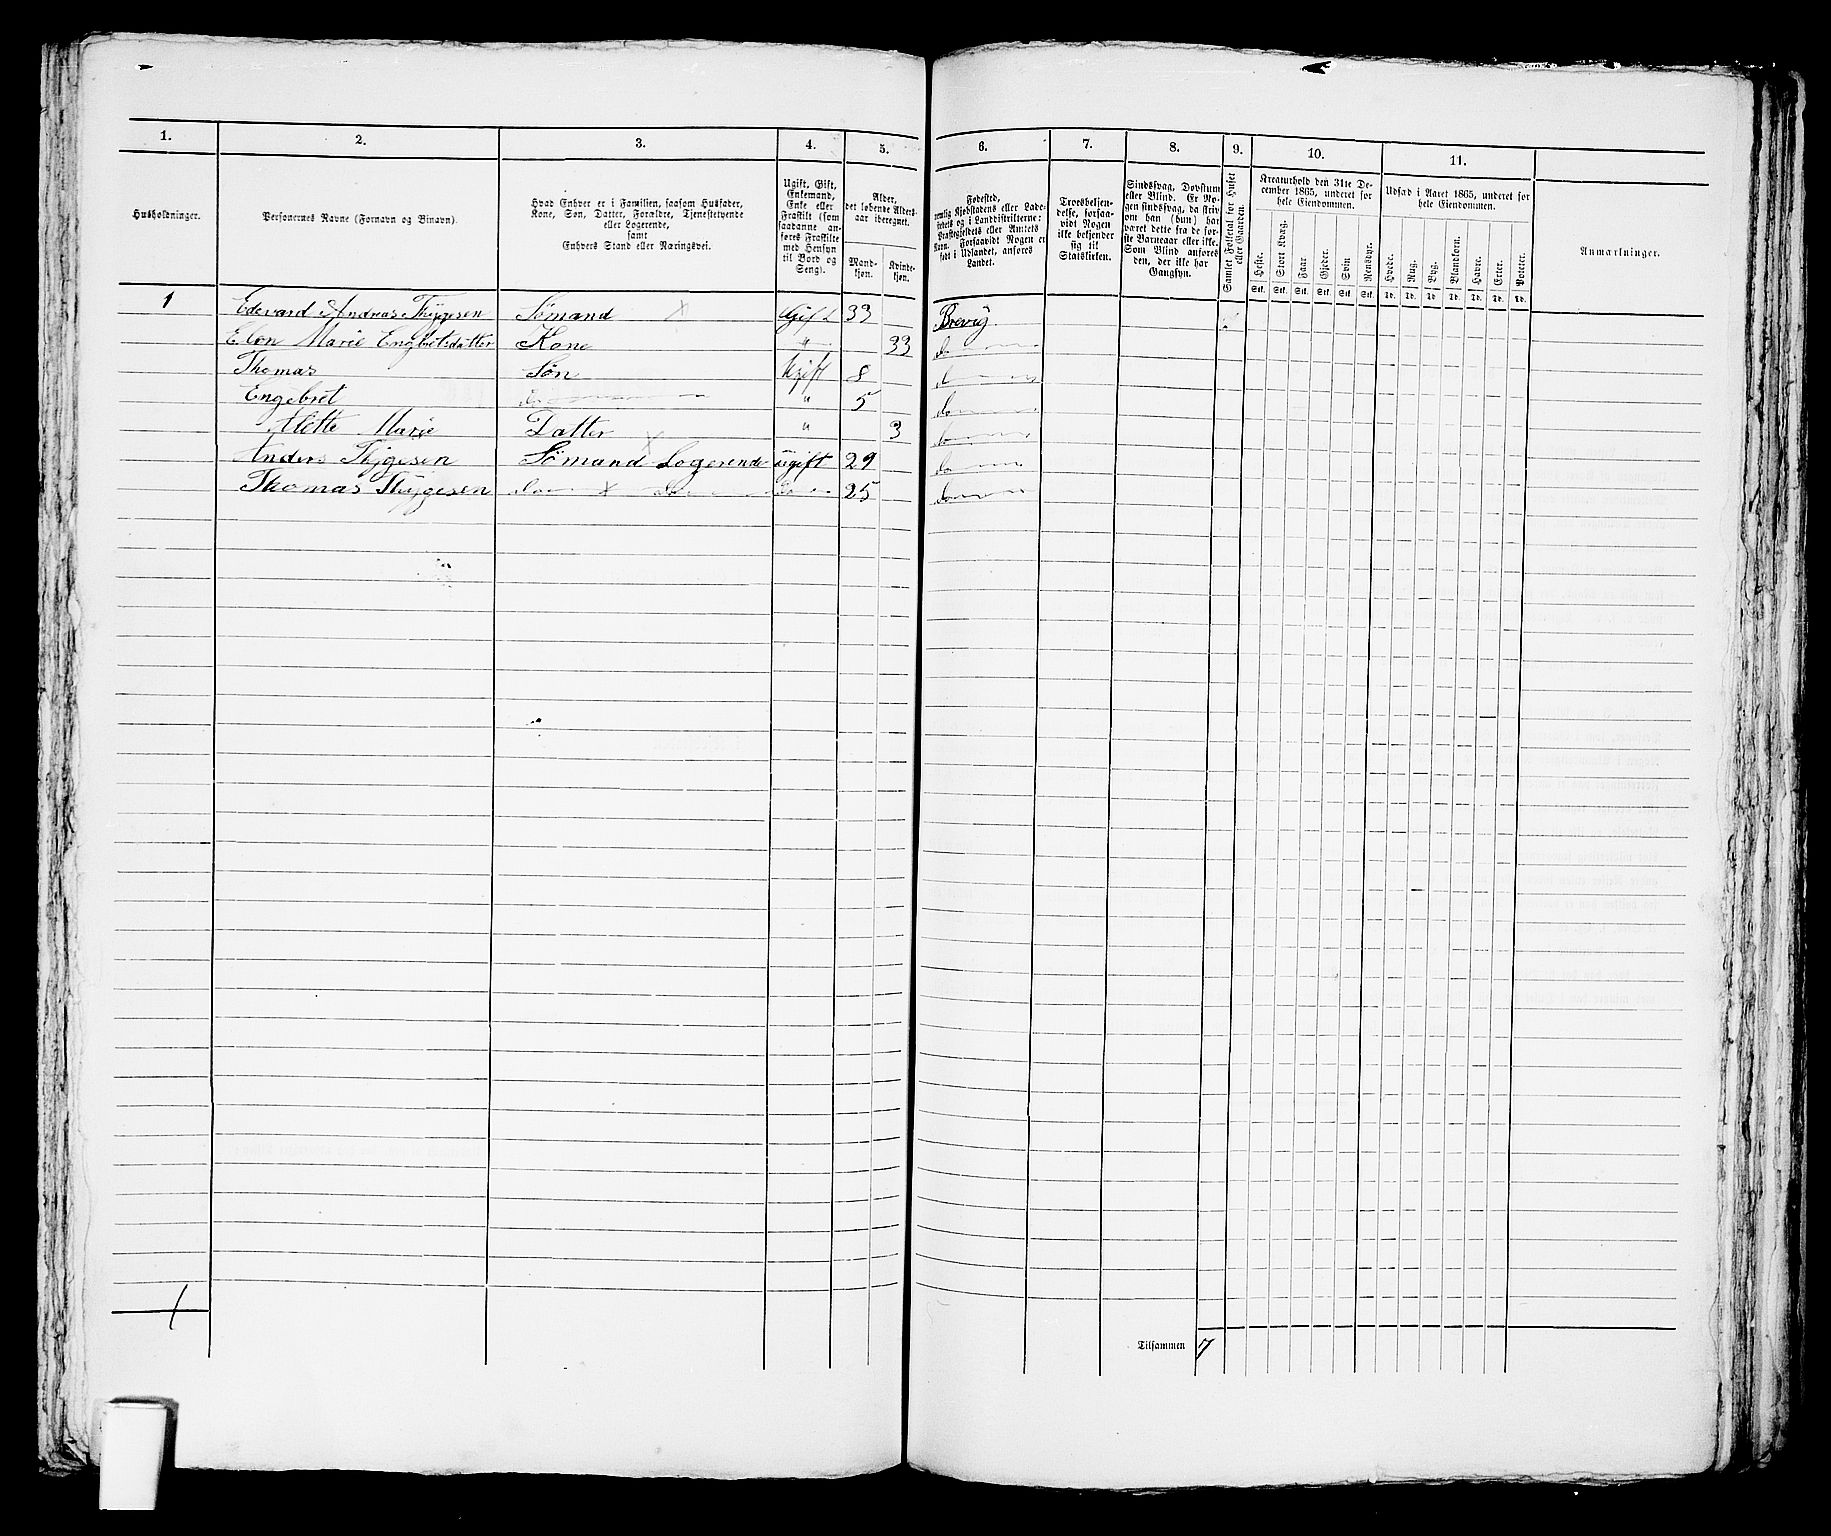 1. 2. 3. 4. 5. 6. 7. 8. 9. 10. 11.
Husholdninger.
Personernes Navne (Fornavn og Binavn).
Hvad Enhver er i Familien, saasom Husfader,
Kone, Søn, Datter, Forældre, Tjenestetyende
eller Logerende,
samt
Enhvers Stand eller Næringsvei.
Ugift, Gift,
Enkemand,
Enke eller
Fraskilt (som
saadanne an-
føres Fraskilte
med Hensyn
til Bord og
Seng).
Alder,
det løbende Alders-
aar iberegnet.
Mand-
kjøn.
Kvinde-
kjøn.
Fødested,
nemlig Kjøbstadens eller Lade-
stedets og i Landdistrikterne:
Præstegjeldets eller Amtets
Navn. Forsaavidt Nogen er
født i Udlandet, anføres
Landet.
Troesbekjen-
delse, forsaa-
vidt Nogen
ikke bekjender
sig til
Statskirken.
Sindssvag, Døvstum
eller Blind. Er No-
gen sindssvag, da skriv
om han (hun) har
været dette fra de før-
ste Barneaar eller ikke.
Som Blind anføres
den, der ikke har
Gangsyn.
Samlet Folketal for Huset
eller Gaarden.
Kreaturhold den 31te De-
cember 1865, underet for
hele Eiendommen.
Heste. Stort Kvæg. Faar Gjeder. Svin Rensdyr.
Stk. Stk. Stk. Stk. Stk. Stk.
Udsæd i Aaret 1865, underet for
hele Eiendommen.
Hvede. Rug. Byg. Blandkorn. Havre. Erter. Poteter.
Td. Td. Td. Td. Td. Td. Td.
Anmærkninger.
1 Edevard Andreas Thygesen Sømand × Gift 33 Brevig
Elen Marie Engbretsdatter Kone " 33 do
Thomas Søn Ugift 8 do
Engebret do " 5 do
Mette Marie Datter " 3 do
Anders Thygesen Sømand Logerende Ugift 29 do
Thomas Thygesen do × do do 25 do
1
Tilsammen 7